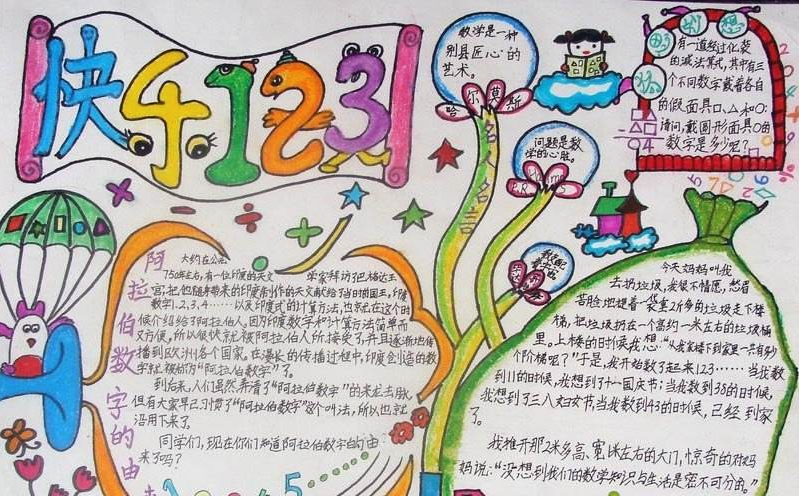 快乐123
数学是一种
别具匠心的
艺术。
哈尔莫斯
名人名言
问题是数
学的心脏。
猜猜想想
有一道经过化装
的减法算式,其中有三
个不同数字戴着各自
的假面具□、△和○.
请问,戴圆形面具○的
数字是多少呢?
阿拉伯数字的由
大约在公元
750年左右,有一位印度的天文学家拜访了巴格达王
宫,把他随身带来的印度制作的天文献给了当时的国王,印度
数字1、2、3、4……以及印度式的计算方法,也就在这个时
候介绍给了阿拉伯人。因为印度数字和计算方法简单而
又方便,所以很快就被阿拉伯人所接受了,并且逐渐地传
播到欧洲各个国家。在漫长的传播过程中,印度创造的数
字就被称为“阿拉伯数字”了。
到后来,人们虽然弄清了“阿拉伯数字”的来龙去脉,
但有大家早已习惯了“阿拉伯数字”这个叫法,所以也就
沿用下来了。
同学们,现在你们知道阿拉伯数字的由
来了吗?
今天妈妈叫我
去扔垃圾,我很不情愿,愁眉
苦脸地提着一袋重2斤多的垃圾走下楼
梯,把垃圾扔在一个高约一米左右的垃圾桶
里。上楼的时候我想:“从我家楼下到家里一共有多少
个阶梯呢?”于是,我开始数了起来123……当我数
到11的时候,我想到了十一国庆节;当我数到38的时候,
我想到了三八妇女节,当我数到43的时候,已经到家
了。
我推开那2米多高、宽1米左右的大门,惊奇的对妈
妈说:“没想到我们的数学知识与生活是密不可分的。”